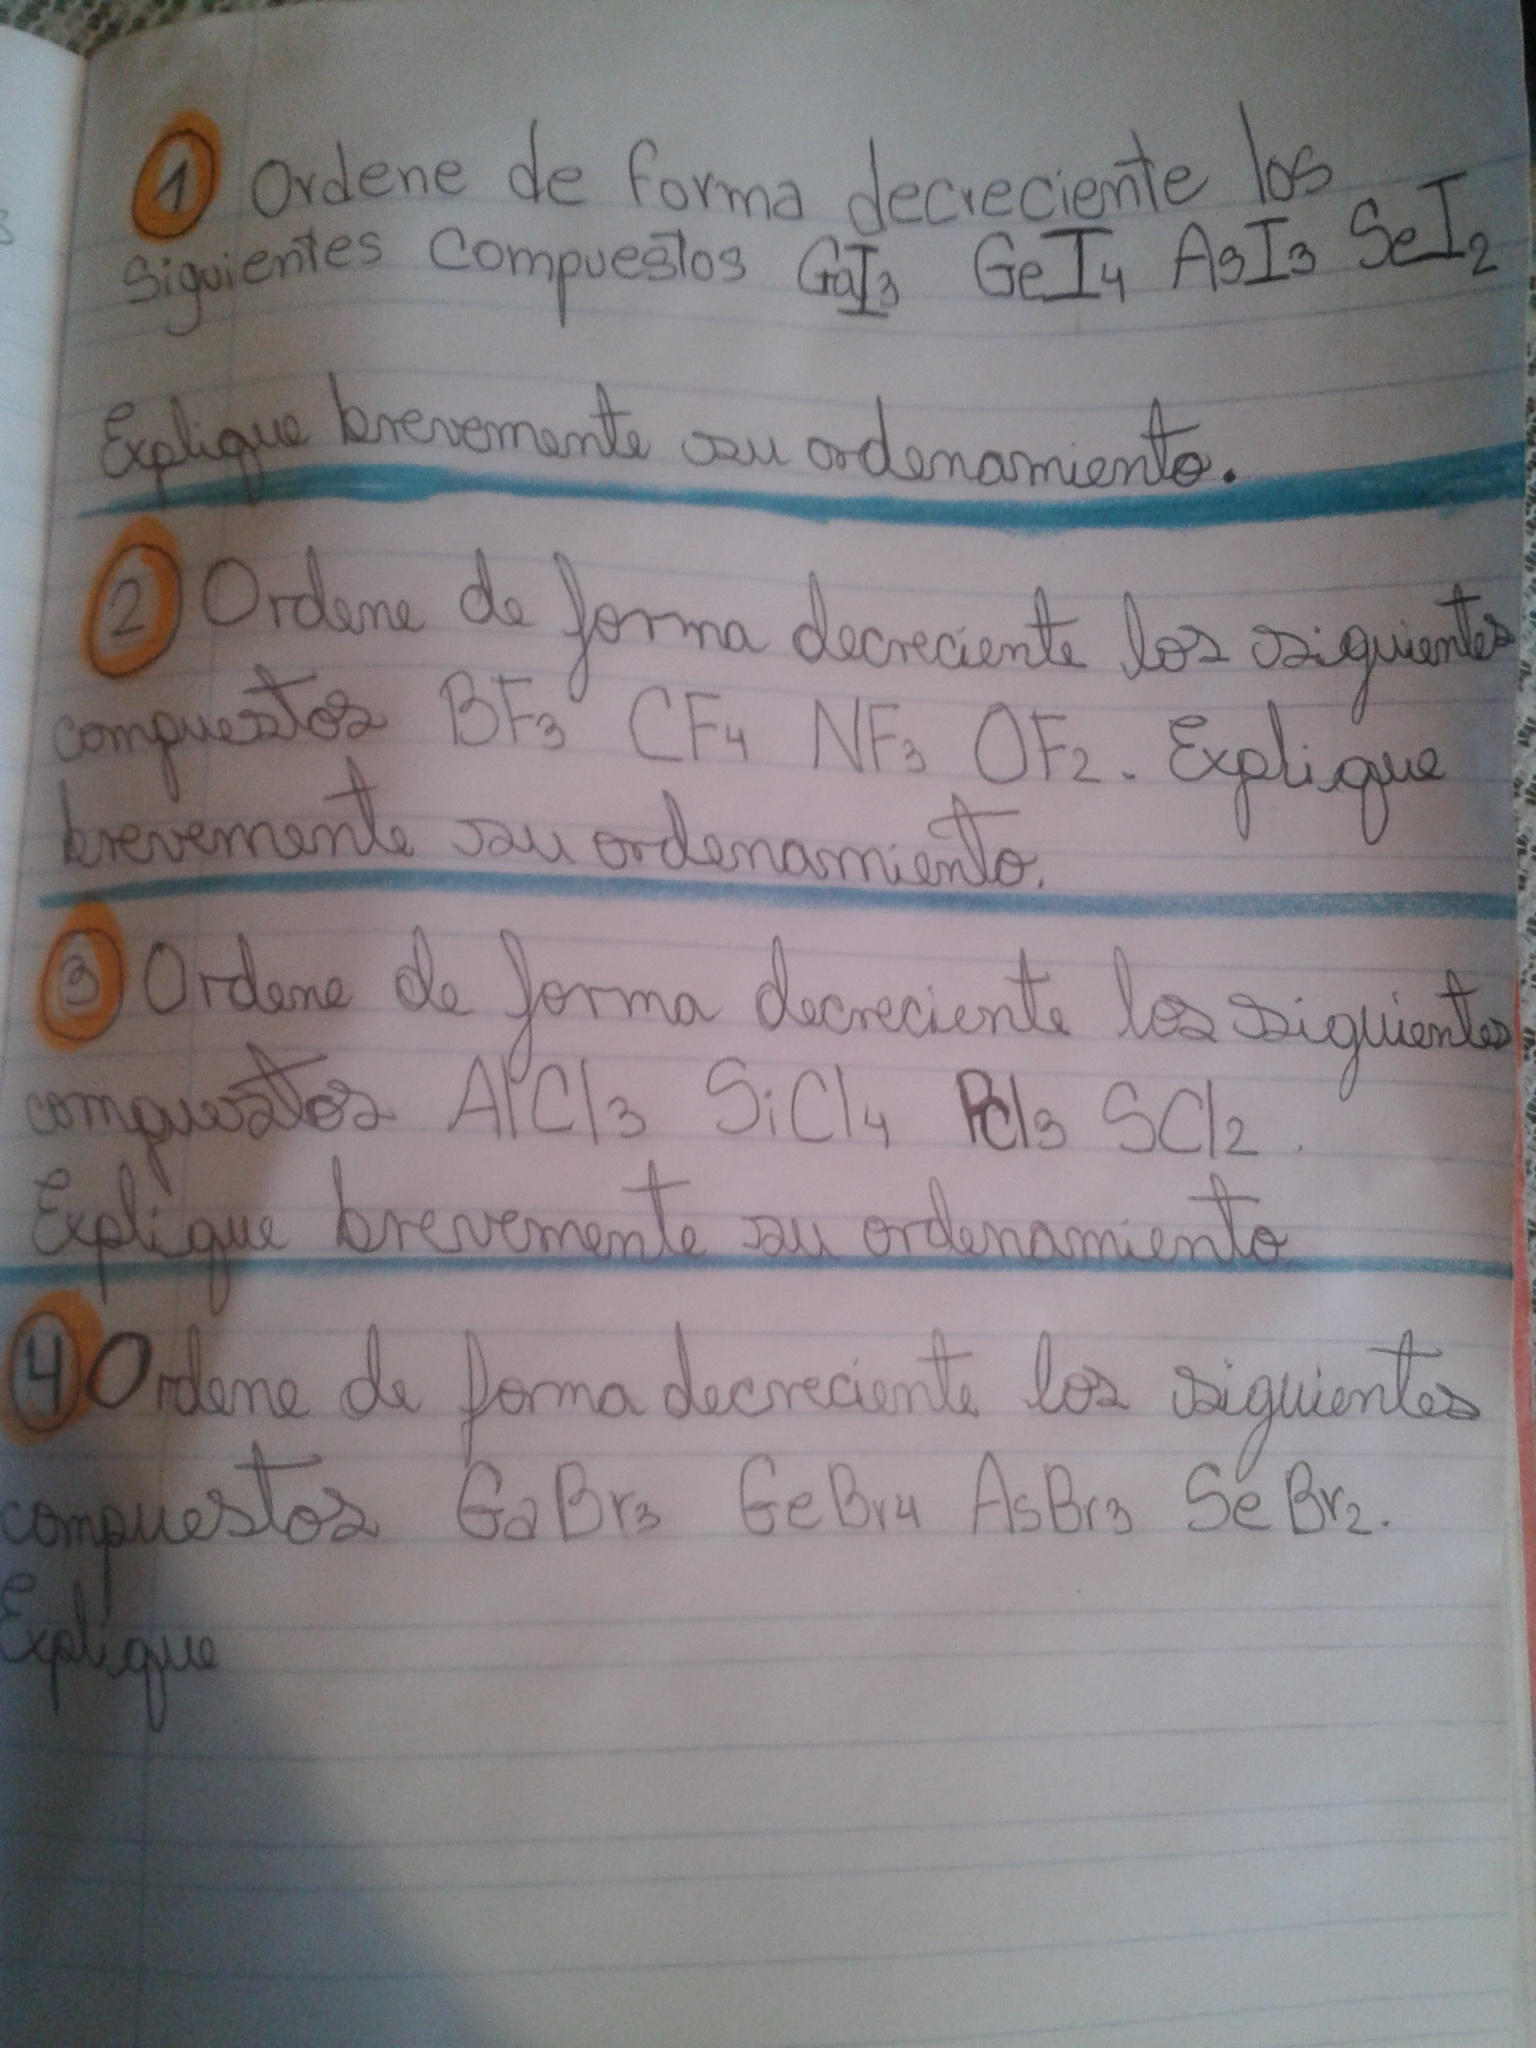 1 Ordene de forma decreciente los
siguientes compuestos GaI3 GeI4 AsI3 SeI2
Explique brevemente su ordenamiento.
2 Ordene de forma decreciente los siguientes
compuestos BF3 CF4 NF3 OF2. Explique
brevemente su ordenamiento.
3 Ordene de forma decreciente los siguientes
compuestos AlCl3 SiCl4 PCl3 SCl2.
Explique brevemente su ordenamiento
4 Ordene de forma decreciente los siguientes
compuestos GaBr3 GeBr4 AsBr3 SeBr2.
Explique